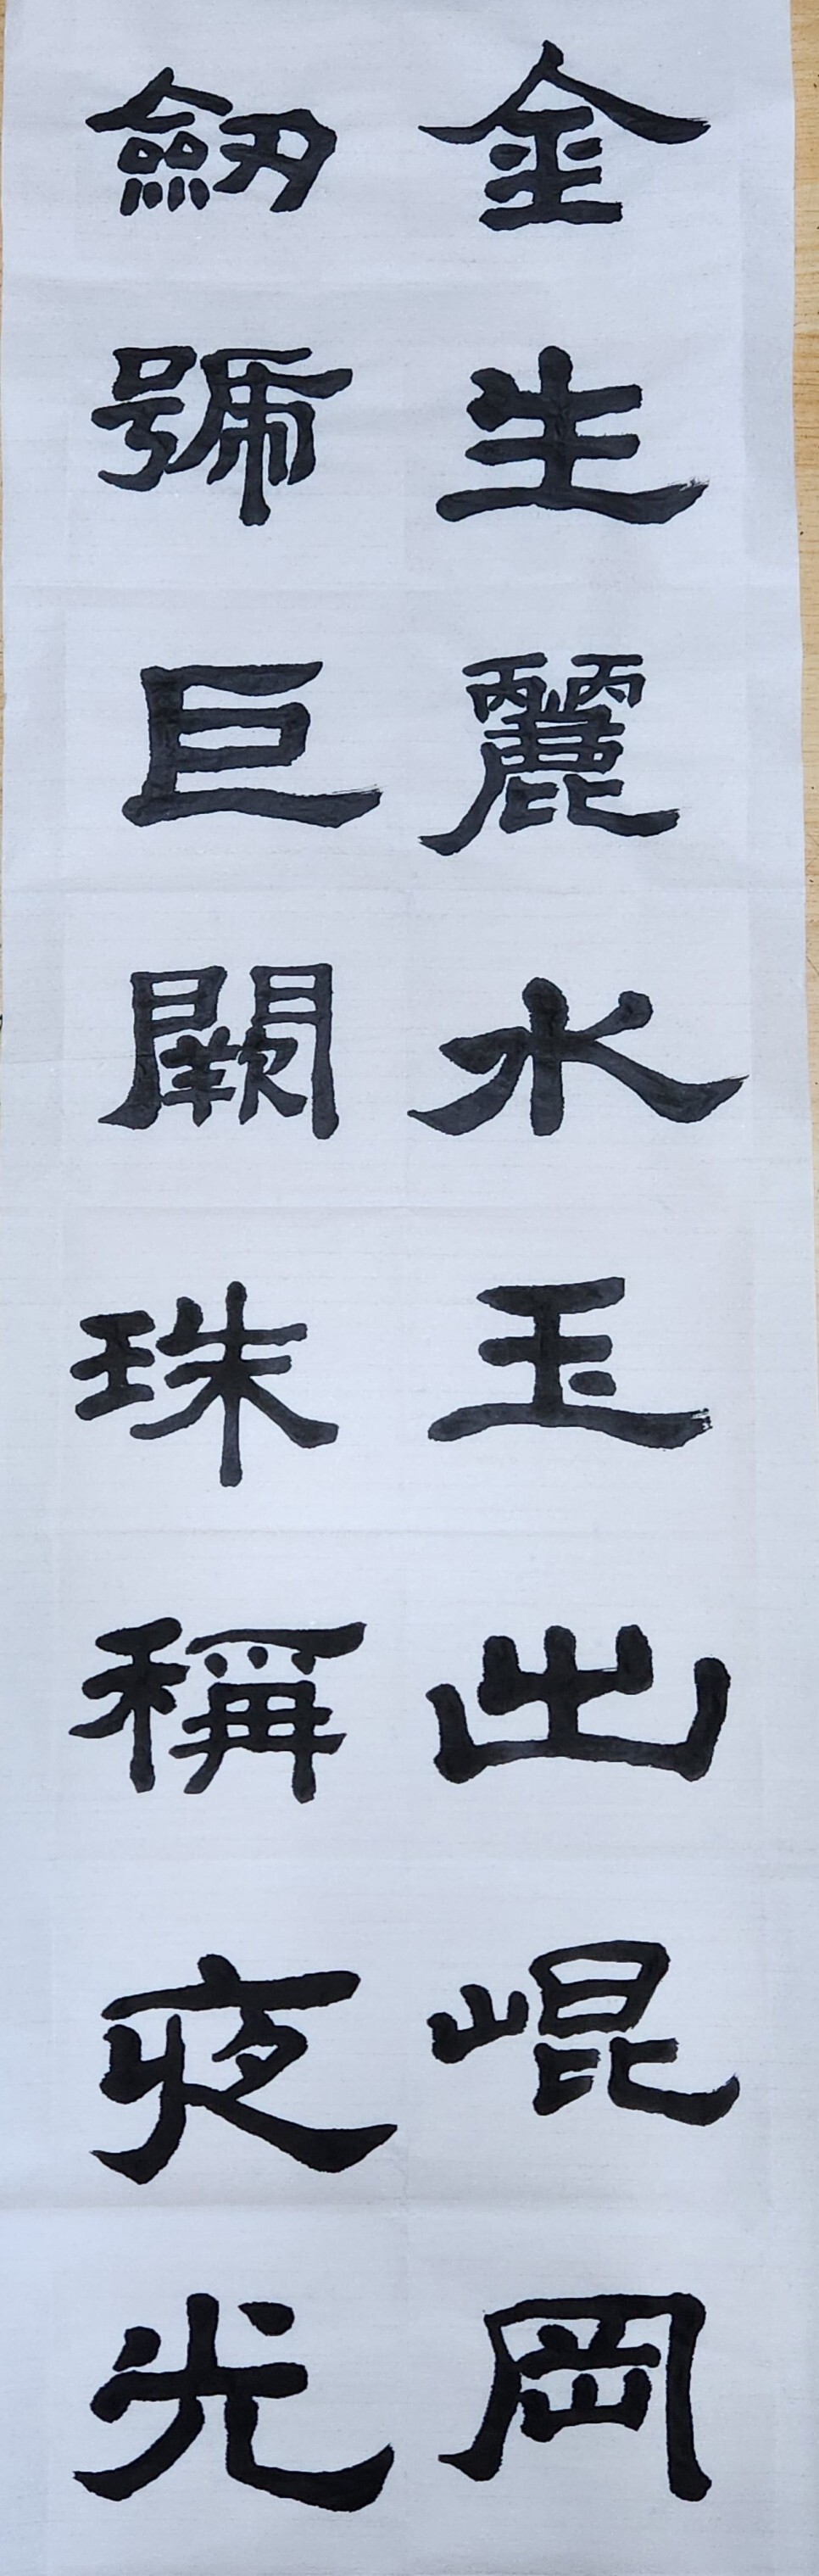 金生麗水玉出崐岡
劒號巨闕珠稱夜光